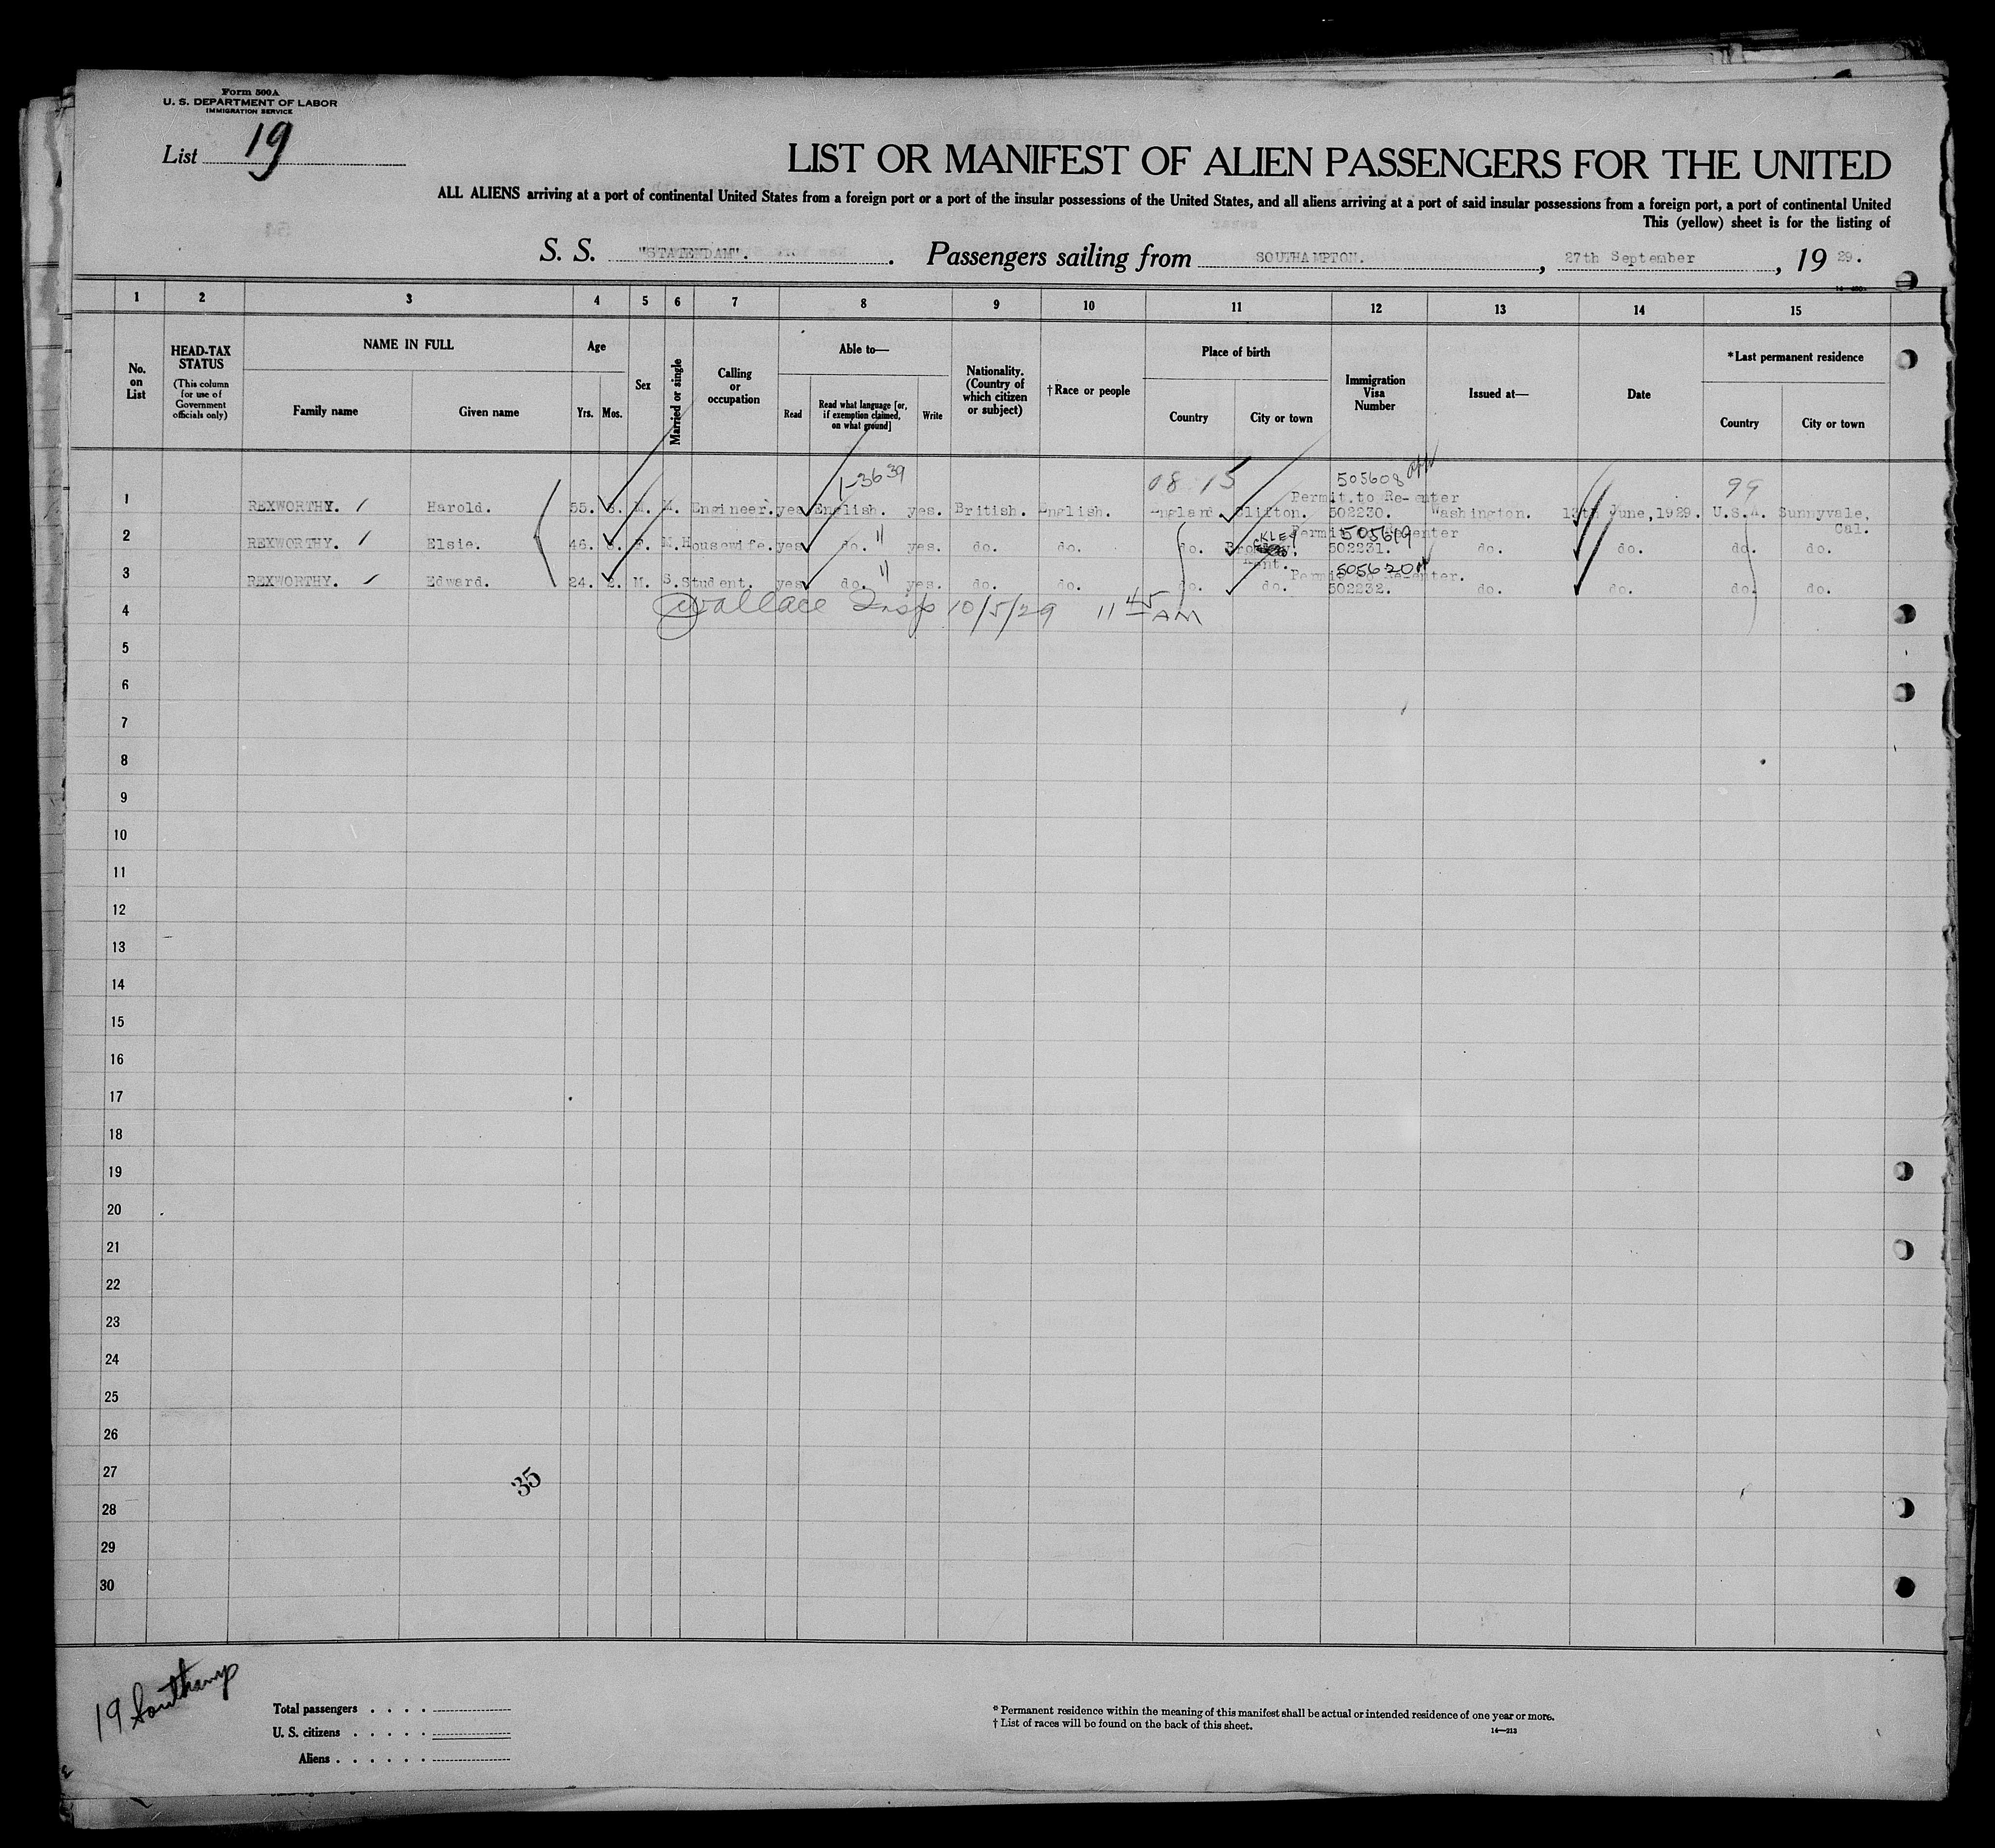 Form 500A
U. S. DEPARTMENT OF LABOR
IMMIGRATION SERVICE
List 19
LIST OR MANIFEST OF ALIEN PASSENGERS FOR THE UNITED
ALL ALIENS arriving at a port of continental United States from a foreign port or a port of the insular possessions of the United States, and all aliens arriving at a port of said insular possessions from a foreign port, a port of continental United
This (yellow) sheet is for the listing of
S. S. "STATENDAM". Passengers sailing from SOUTHAMPTON. , 27th September , 19 29.
1 2 3 4 5 6 7 8 9 10 11 12 13 14 15
No. on List
HEAD-TAX STATUS (This column for use of Government officials only)
NAME IN FULL
Family name Given name
Age
Yrs. Mos.
Sex
Married or single
Calling or occupation
Able to—
Read Read what language [or, if exemption claimed, on what ground] Write
Nationality. (Country of which citizen or subject)
†Race or people
Place of birth
Country City or town
Immigration Visa Number
Issued at—
Date
*Last permanent residence
Country City or town
1-3639 08 15 505608 99
Permit to Re-enter
1 REXWORTHY. Harold. 55. M. M. Engineer. yes English. yes. British. English. England. Clifton. 502230. Washington. 13th June,1929. U.S.A. Sunnyvale, Cal.
Permit to Re-enter 505619
2 REXWORTHY. Elsie. 46. F. M. Housewife. yes do. yes. do. do. do. 502231. do. do. do. do.
Kent. Permit to Re-enter. 505620
3 REXWORTHY. Edward. 24. M. S. Student. yes do. yes. do. do. do. do. 502232. do. do. do. do.
Wallace Insp 10/5/29 11 45 AM
4
5
6
7
8
9
10
11
12
13
14
15
16
17
18
19
20
21
22
23
24
25
26
27
35
28
29
30
19 Southamp
Total passengers . . . .
U. S. citizens . . . . .
Aliens . . . . . .
* Permanent residence within the meaning of this manifest shall be actual or intended residence of one year or more.
† List of races will be found on the back of this sheet.
14—213